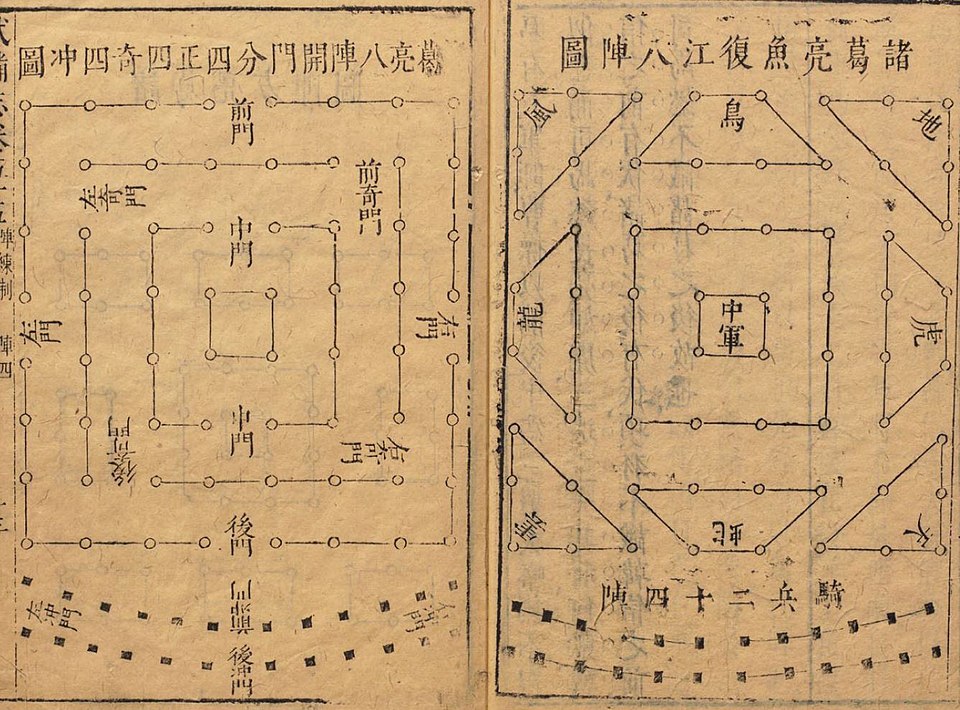 諸葛亮魚復江八陣圖
地
鳥
風
虎
中軍
龍
天
蛇
雲
騎兵二十四陣
葛亮八陣開門分四正四奇四冲圖
前門
前奇門
左奇門
中門
右門
左門
中門
右奇門
後奇門
後門
前冲門
右冲門
左冲門
後冲門
武備志卷五十五
陣練制
陣四